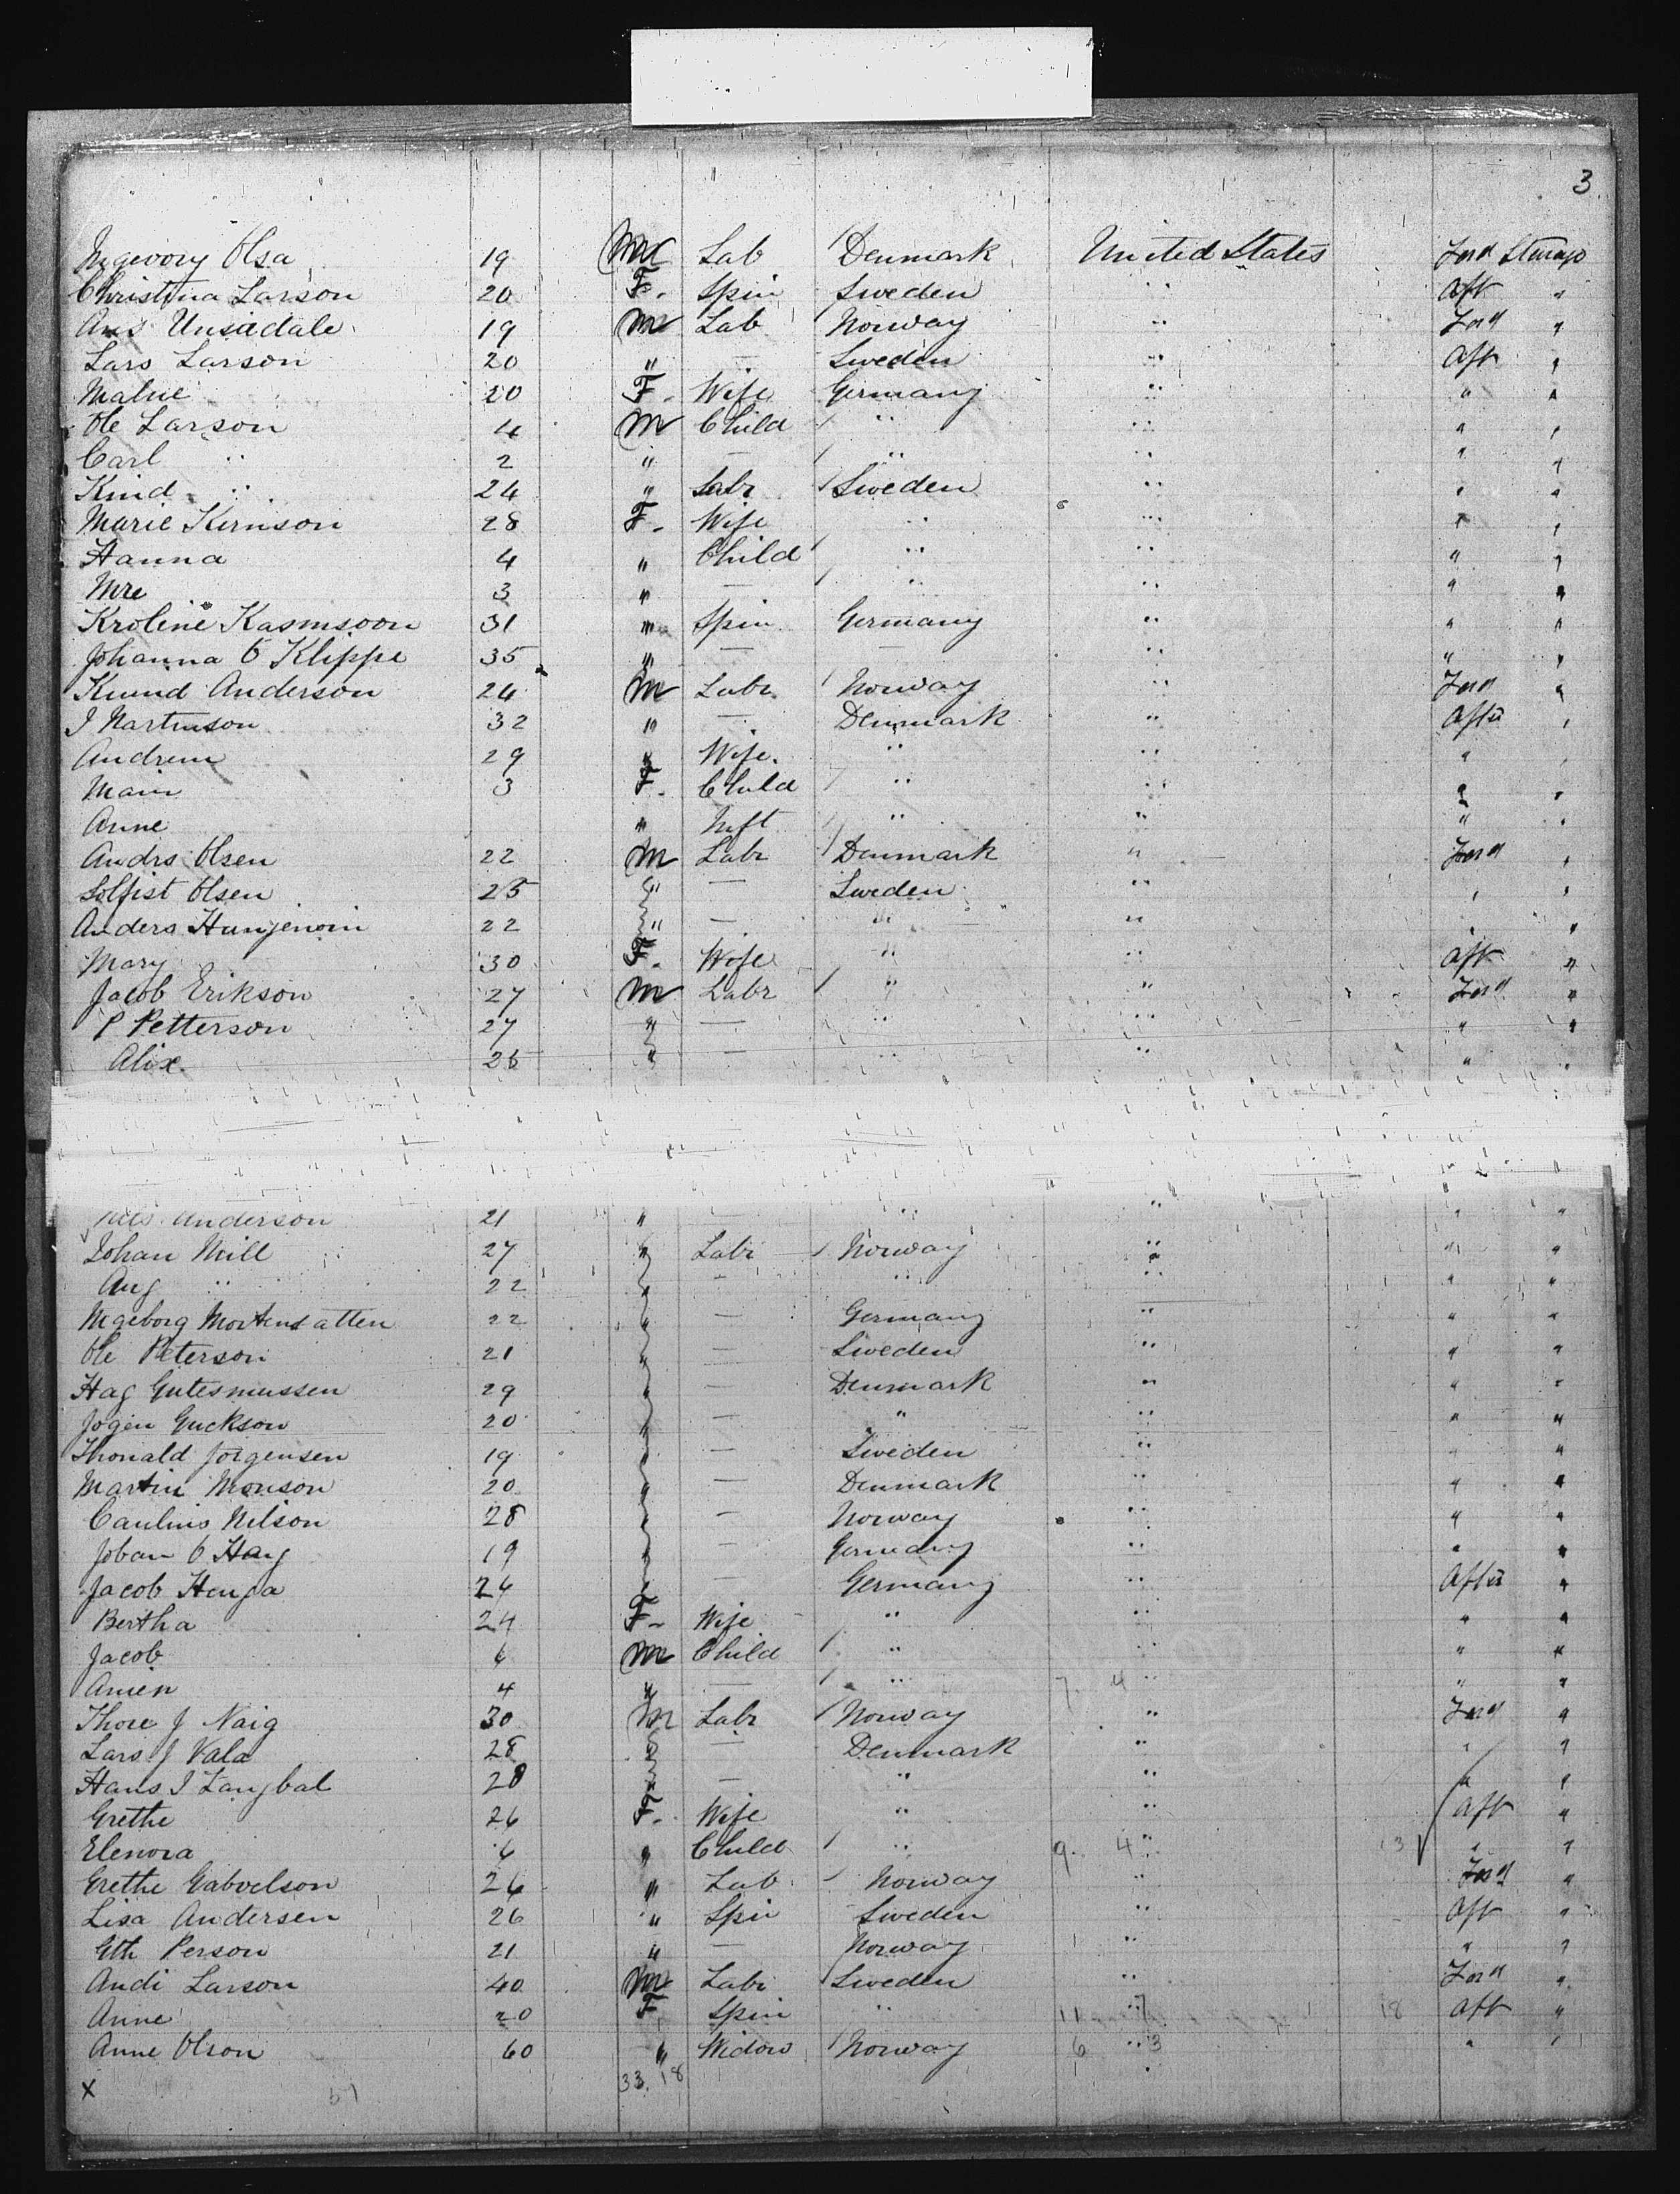 3
Ngevory Olsa 19 M Lab Denmark United States Ford Steerage
Christina Larson 20 F. Spin Sweden " Aft "
Ans Unsedale 19 M Lab Norway " Ford "
Lars Larson 20 " — Sweden " Aft "
Malne 20 F. Wife Germany " " "
Ole Larson 4 M Child " " " "
Carl " 2 " — " " " "
Knid " 24 " Labr Sweden " " "
Marie Kirnson 28 F. Wife " " " "
Hanna 4 " Child " " " "
Mre 3 " — " " " "
Kroline Kasmsoon 31 " Spin Germany " " "
Johanna O Klippe 35 " — — " " "
Knund Anderson 24 M Labr Norway " Ford "
J Nartinson 32 " — Denmark " Aftr "
Andrem 29 " Wife. " " " "
Main 3 F. Child " " " "
Anne " Inft " " " "
Andrs Olsen 22 M Labr Denmark " Ford "
Solfist Olsen 25 " — Sweden " " "
Anders 22 " — " " " "
Mary 30 F. Wife " " Aft "
Jacob Erikson 27 M Labr " " Ford "
P Petterson 27 " — " " " "
Alix 26 " — " " " "
Anderson 21 " — " " " "
Johan Mill 27 " Labr Norway " " "
Aug " 22 " — " " " "
Ngeborg Mortensatten 22 " — Germany " " "
Ole Peterson 21 " — Sweden " " "
Hag Gutesmussen 29 " — Denmark " " "
Jogen Guckson 20 " — " " " "
Thonald Jorgensen 19 " — Sweden " " "
Martin Monson 20 " — Denmark " " "
Caulins Nilson 28 " — Norway " " "
Johan O Hang 19 " — Germany " " "
Jacob Henja 24 " — Germany " Aftr "
Bertha 24 F. Wife " " " "
Jacob 6 M Child " " " "
Amen 4 " — " 7. 4 " " "
Thore J Naig 30 M Labr Norway " Ford "
Lars J Vala 28 " — Denmark " " "
Hans J Langbal 28 " — " " " "
Grethe 26 F. Wife " " Aft "
Elenora 6 " Child " 9. 4 " 13 " "
Grethe Gabvelson 26 " Lab Norway " Ford "
Lisa Andersen 26 " Spin Sweden " Aft "
Gth Person 21 " — Norway " " "
Andi Larson 40 M Labr Sweden " Ford "
Anne 20 F Spin " 11 7 18 Aft "
Anne Olson 60 " Widow Norway 6 " 3 " "
X 51 33. 18